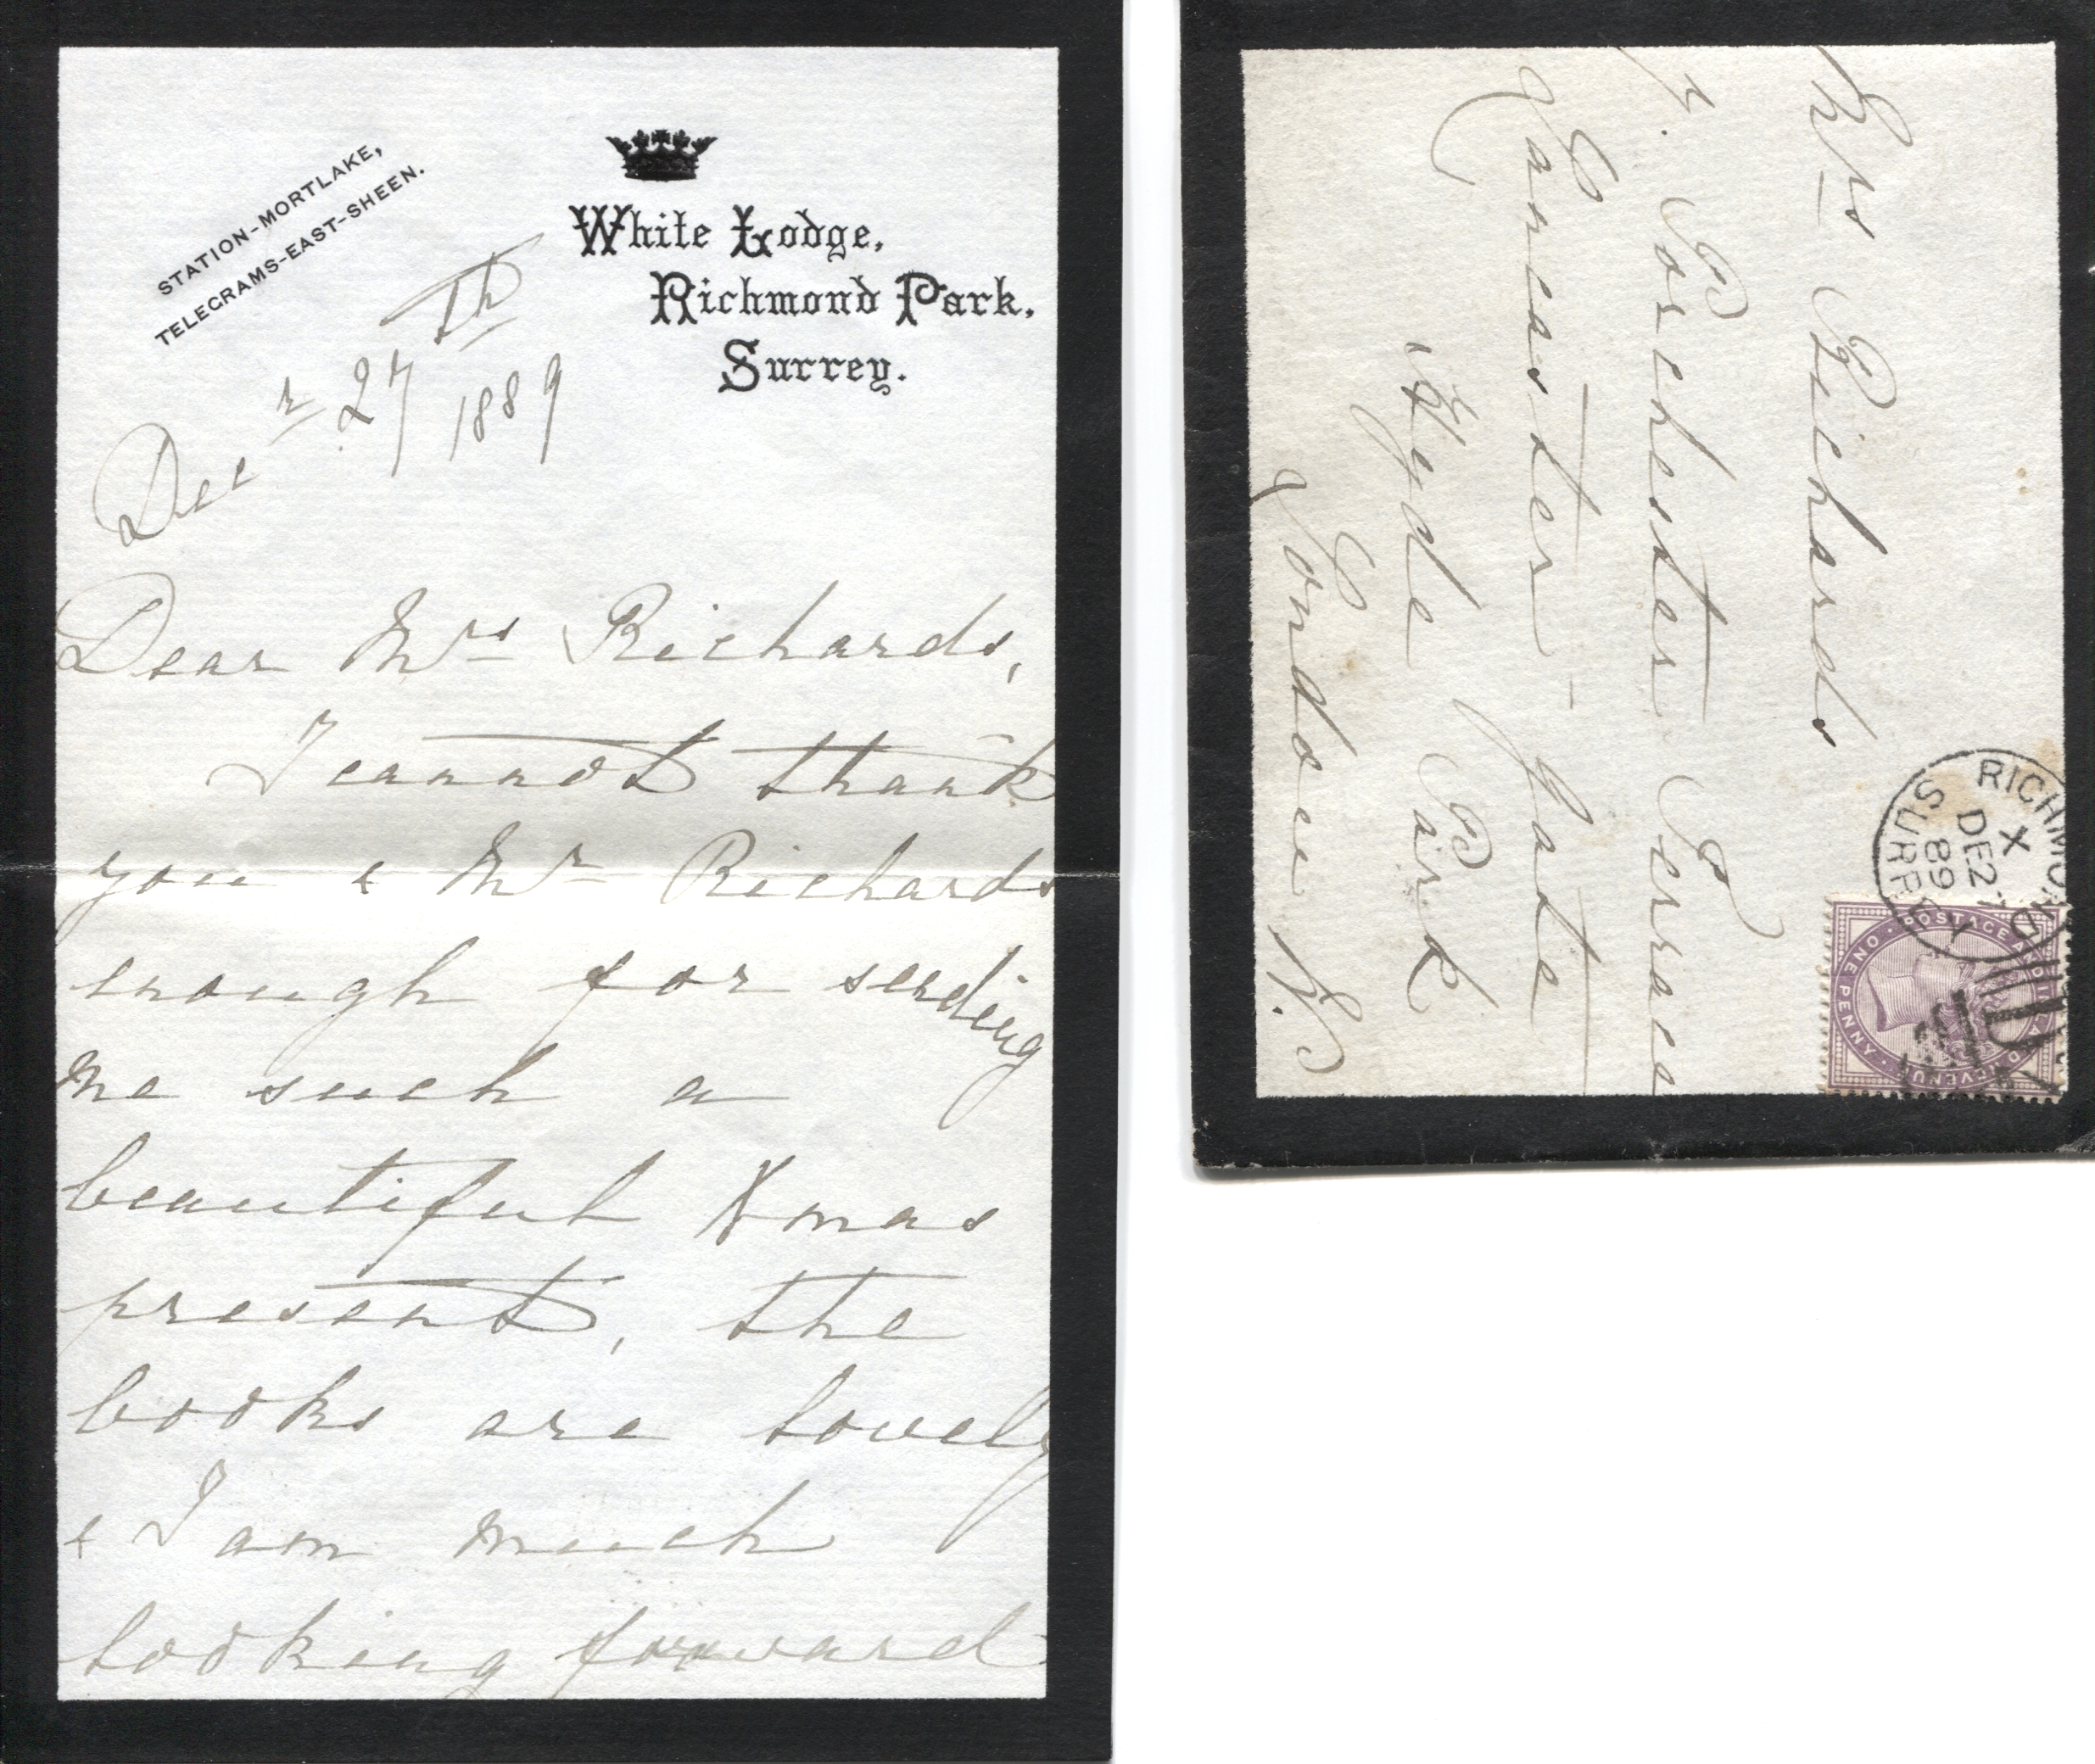 STATION-MORTLAKE,
TELEGRAMS-EAST-SHEEN.
White Lodge,
Richmond Park,
Surrey.
Decr 27th
1889
Dear Mrs Richards,
I cannot thank
you & Mr Richards
enough for sending
me such a
beautiful Xmas
present, the
books are lovely
& I am much
looking forward
Mrs Richards
Porchester Terrace
Lancaster - Gate
Hyde Park
London W.
RICHMOND
X
DE 27
89
SURREY
POSTAGE AND INLAND REVENUE
ONE PENNY